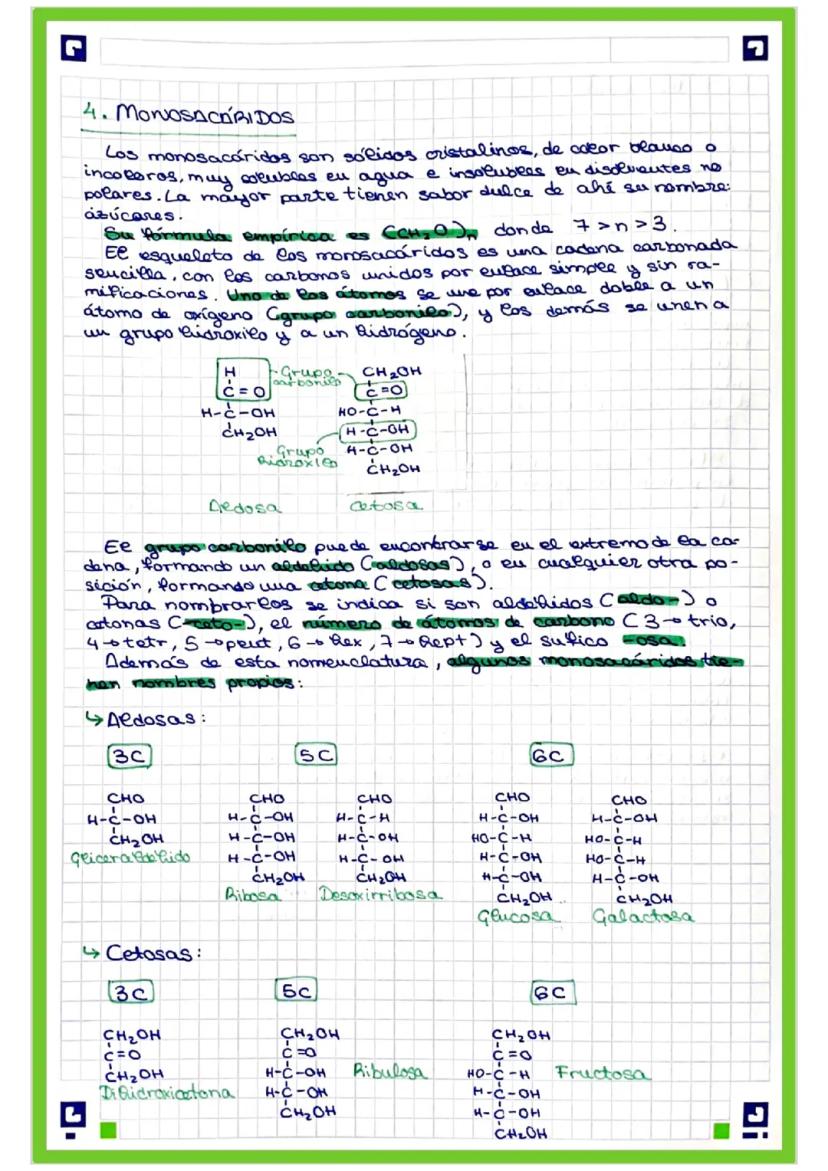 4. MONOSACÁRIDOS
Los monosacáridos son sólidos cristalinos, de color blanco o
incoloros, muy solubles en agua e insolubles en disolventes no
polares. La mayor parte tienen sabor dulce de ahí su nombre:
azúcares.
Su fórmula empírica es (CH₂O)ₙ donde 7>n>3.
El esqueleto de los monosacáridos es una cadena carbonada
sencilla, con los carbonos unidos por enlace simple y sin ra-
mificaciones. Uno de los átomos se une por enlace doble a un
átomo de oxígeno (grupo carbonilo), y los demás se unen a
un grupo hidroxilo y a un hidrógeno.
H Grupo carbonilo CH₂OH
C=O C=O
H-C-OH HO-C-H
CH₂OH H-C-OH
Grupo hidroxilo H-C-OH
CH₂OH
Aldosa Cetosa
El grupo carbonilo puede encontrarse en el extremo de la ca-
dena, formando un aldehido (aldosas), o en cualquier otra po-
sición, formando una cetona (cetosas).
Para nombrarlos se indica si son aldehidos (aldo-) o
cetonas (-ceto-), el número de átomos de carbono (3→trio,
4→tetr, 5→pent, 6→hex, 7→hept) y el sufico -osa.
Además de esta nomenclatura, algunos monosacáridos tie-
nen nombres propios:
↳ Aldosas:
3C 5C 6C
CHO CHO CHO CHO CHO
H-C-OH H-C-OH H-C-H H-C-OH H-C-OH
CH₂OH H-C-OH H-C-OH HO-C-H HO-C-H
Gliceraldehido H-C-OH H-C-OH H-C-OH HO-C-H
CH₂OH CH₂OH H-C-OH H-C-OH
Ribosa Desoxirribosa CH₂OH CH₂OH
Glucosa Galactosa
↳ Cetosas:
3C 5C 6C
CH₂OH CH₂OH CH₂OH
C=O C=O C=O
CH₂OH H-C-OH Ribulosa HO-C-H Fructosa
Dihidroxicetona H-C-OH H-C-OH
CH₂OH H-C-OH
CH₂OH